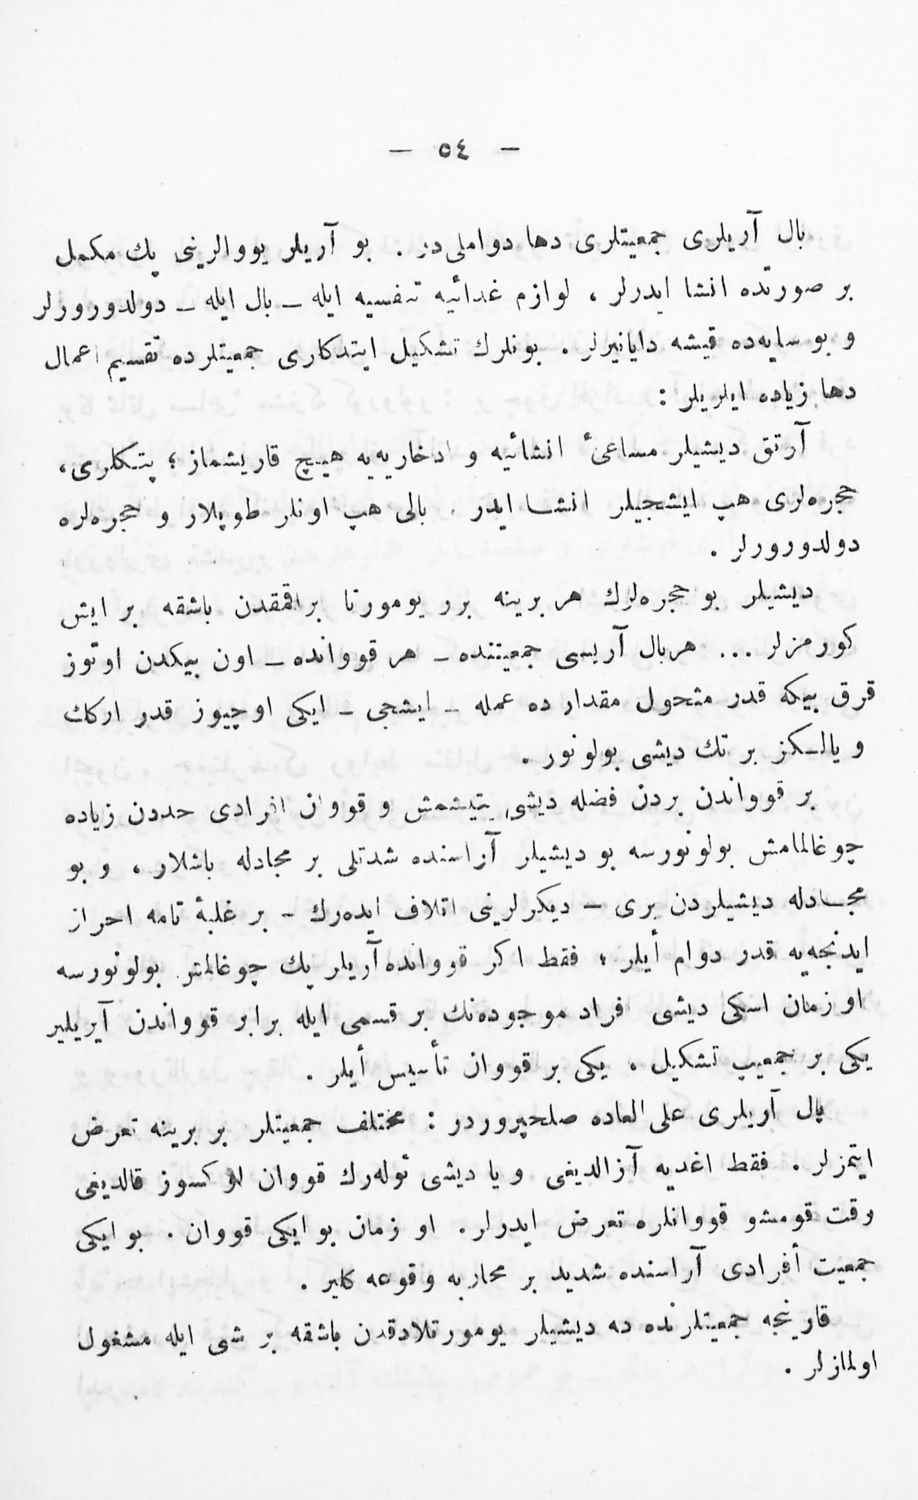 — ٥٤ —
بال آریلری جمعیتلری دها دواملی در . بو آریلر یووالرینی پك مكمل
بر صورتده انشا ایدرلر ، لوازم غدائیه تنفسیه ایله ــ بال ایله ــ دولدورورلر
و بو سایه‌ده قیشه دایانیرلر . بونلرك تشكیل ایتدكاری جمعیتلرده تقسیم اعمال
دها زیاده ایلریلر :
آرتق دیشیلر مساعیٔ انشائیه و ادخاریه‌یه هیچ قاریشماز ؛ پتكلری،
حجره‌لری هپ ایشجیلر انشا ایدر . بالی هپ اونلر طوپلار و حجره‌لره
دولدورورلر .
دیشیلر بو حجره‌لرك هر برینه برر یومورتا براقمقدن باشقه بر ایش
كورمزلر ... هربال آریسی جمعیتنده ــ هر قوواندە ــ اون بیكدن اوتوز
قرق بیكه قدر متحول مقدارده عمله ــ ایشجی ــ ایكی اوچیوز قدر اركك
و یالكز بر تك دیشی بولونور .
بر قوواندن بردن فضله دیشی یتیشمش و قووان افرادی حددن زیاده
چوغالمامش بولونورسه بو دیشیلر آراسنده شدتلی بر مجادله باشلار ، و بو
مجادله دیشیلردن بری ــ دیكرلرینی اتلاف ایده‌رك ــ بر غلبۀ تامه احراز
ایدنجه‌یه قدر دوام أیلر ؛ فقط اكر قوواندە آریلر پك چوغالمش بولونورسه
او زمان اسكی دیشی افراد موجوده‌نك بر قسمی ایله برابر قوواندن آیریلیر
یكی بر جمعیت تشكیل ، یكی بر قووان تأسیس أیلر .
بال آریلری علی العاده صلحپروردر : مختلف جمعیتلر بر برینه تعرض
ایتمزلر . فقط اغدیه آزالدیغی و یا دیشی ئوله‌رك قووان ئوكسوز قالدیغی
وقت قومشو قووانلره تعرض ایدرلر. او زمان بو ایكی قووان . بو ایكی
جمعیت أفرادی آراسنده شدید بر محاربه وقوعه كلیر .
قارینجه جمعیتلرنده ده دیشیلر یومورتلامقدن باشقه بر شی ایله مشغول
اولمازلر .